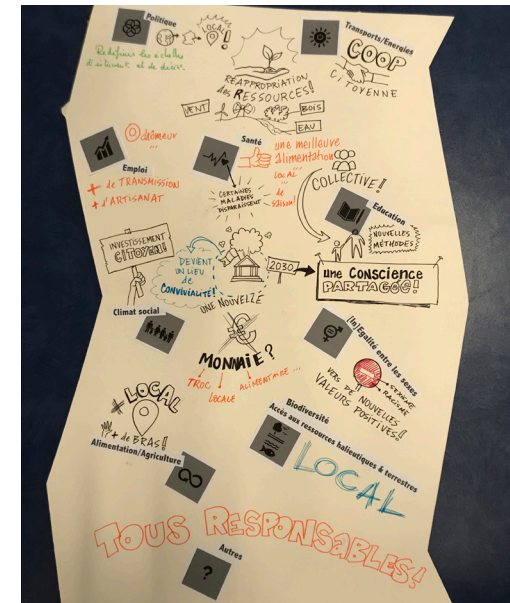 Politique
LOCAL!
Redéfinir les échelles
d'activent et de décis.
Transports/Energies
COOP
CITOYENNE
RÉAPPROPRIATION
des RESSOURCES!
VENT
BOIS
EAU
0 chômeur
...
Emploi
+ de TRANSMISSION
+ d'ARTISANAT
Santé
une meilleure
alimentation
LOCAL
...
de
saison!
CERTAINES
MALADIES
DISPARAISSENT
COLLECTIVE!
Education
NOUVELLES
MÉTHODES
INVESTISSEMENT
CITOYEN!
DEVIENT
UN LIEU
de
CONVIVIALITÉ!
2030
une CONSCIENCE
PARTAGÉE!
UNE NOUVELLE
€
MONNAIE?
TROC
LOCALE
ALIMENTAIRE ...
Climat social
[In]Egalité entre les sexes
SEXISME
RACISME
VERS DE NOUVELLES
VALEURS POSITIVES!!
+ LOCAL
+ de BRAS!!
Alimentation/Agriculture
Biodiversité
Accès aux ressources halieutiques & terrestres
LOCAL
TOUS RESPONSABLES!
Autres
?